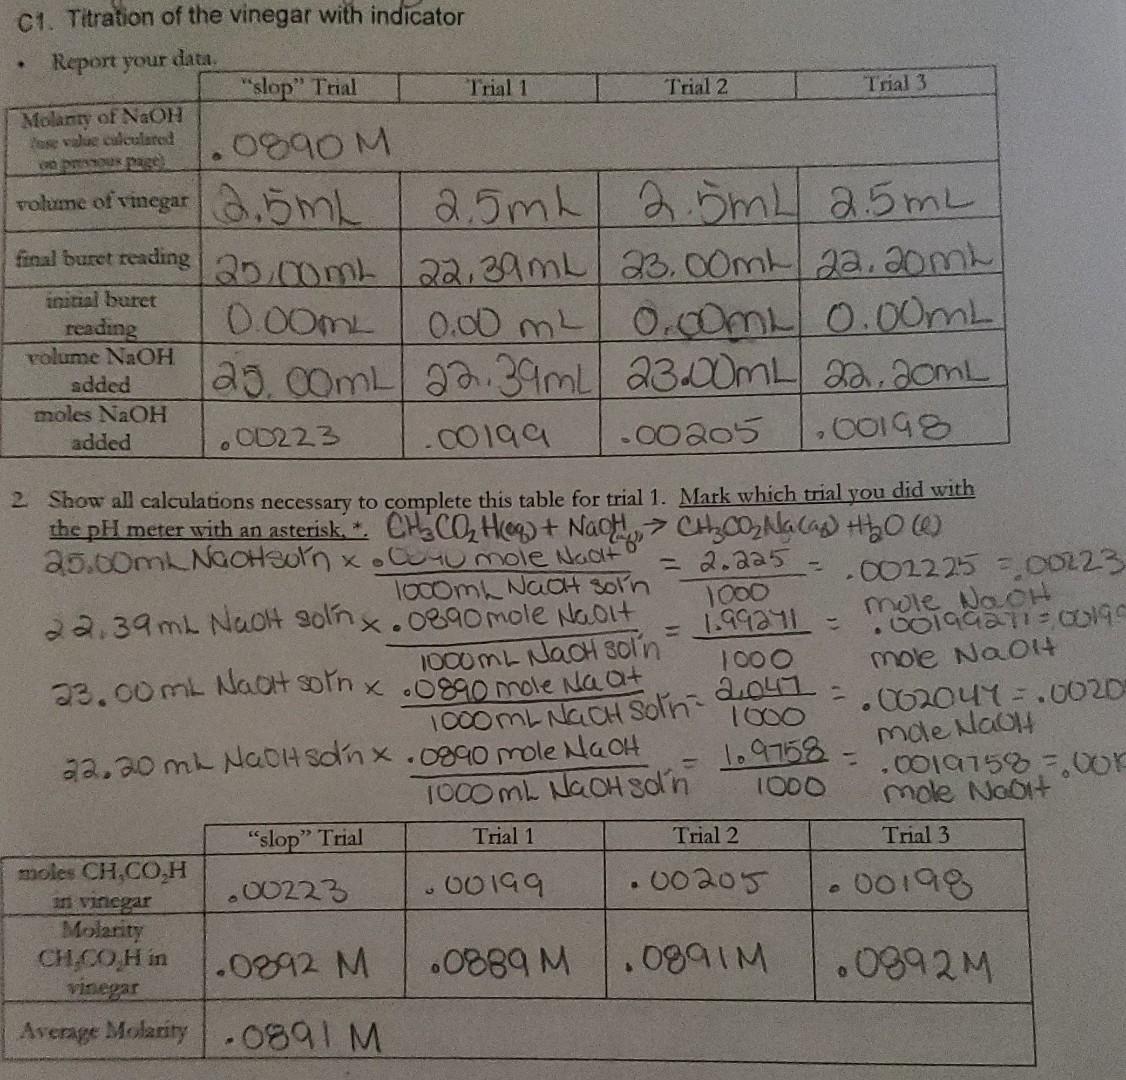 C1. Titration of the vinegar with indicator
• Report your data.
"slop" Trial Trial 1 Trial 2 Trial 3
Molarity of NaOH
(use value calculated
on previous page)
.0890 M
volume of vinegar 2.5mL 2.5mL 2.5mL 2.5mL
final buret reading 25.00mL 22.39mL 23.00mL 22.20mL
initial buret
reading
0.00mL 0.00 mL 0.00mL 0.00mL
volume NaOH
added
25.00mL 22.39mL 23.00mL 22.20mL
moles NaOH
added
.00223 .00199 .00205 .00198
2. Show all calculations necessary to complete this table for trial 1. Mark which trial you did with
the pH meter with an asterisk, *. CH3CO2H(aq) + NaOH(aq) → CH3CO2Na(aq) + H2O(l)
25.00mL NaOH sol'n x .0890 mole NaOH / 1000mL NaOH sol'n = 2.225 / 1000 = .002225 = .00223
mole NaOH
22.39mL NaOH sol'n x .0890 mole NaOH / 1000mL NaOH sol'n = 1.99271 / 1000 = .00199271 = .00199
mole NaOH
23.00mL NaOH sol'n x .0890 mole NaOH / 1000mL NaOH sol'n = 2.047 / 1000 = .002047 = .0020
mole NaOH
22.20 mL NaOH sol'n x .0890 mole NaOH / 1000mL NaOH sol'n = 1.9758 / 1000 = .0019758 = .001
mole NaOH
"slop" Trial Trial 1 Trial 2 Trial 3
moles CH3CO2H
in vinegar
.00223 .00199 .00205 .00198
Molarity
CH3CO2H in
vinegar
.0892 M .0889 M .0891 M .0892 M
Average Molarity .0891 M